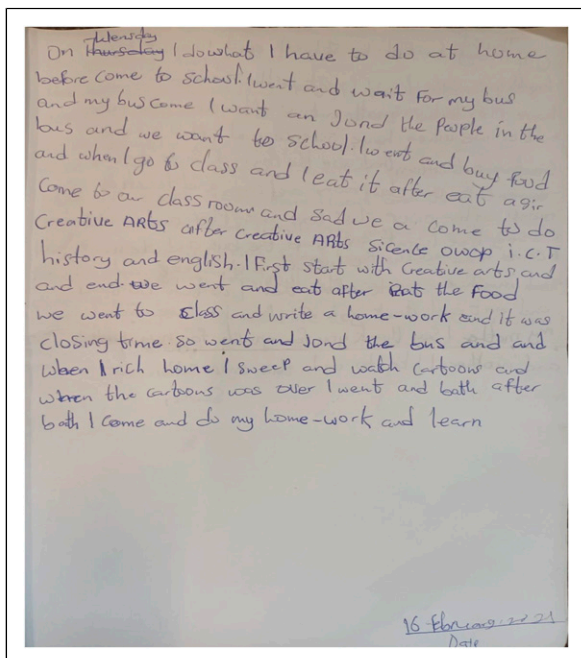 Wensday
On Thursday I do what I have to do at home
before come to school. I went and wait for my bus
and my bus come I want an Jond the people in the
bus and we want to school. I went and buy food
and when I go to class and I eat it after eat a gir
come to our class room and sad we a come to do
Creative ARTs after Creative ARTs Sicence owop i.C.T
history and english. I First start with Creative arts and
and end we went and eat after eat the food
we went to class and write a home-work and it was
closing time. So went and Jond the bus and and
when I rich home I sweep and watch cartoons and
when the cartoons was over I went and bath after
bath I come and do my home-work and learn
16 February 2021
Date